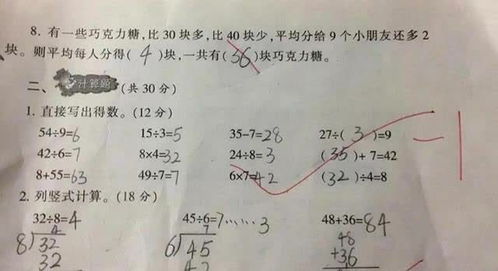 8. 有一些巧克力糖，比 30 块多，比 40 块少，平均分给 9 个小朋友还多 2
块。则平均每人分得( 4 )块，一共有( 36 )块巧克力糖。
二、计算题 (共 30 分)
1. 直接写出得数。(12 分)
54÷9=6 15÷3=5 35-7=28 27÷( 3 )=9
42÷6=7 8×4=32 24÷8=3 (35)+7=42
8+55=63 49÷7=7 6×7=42 (32)÷4=8
-1
2. 列竖式计算。(18 分)
32÷8=4 45÷6=7……3 48+36=84
4 7 48
8)32 6)45 +36
32 42